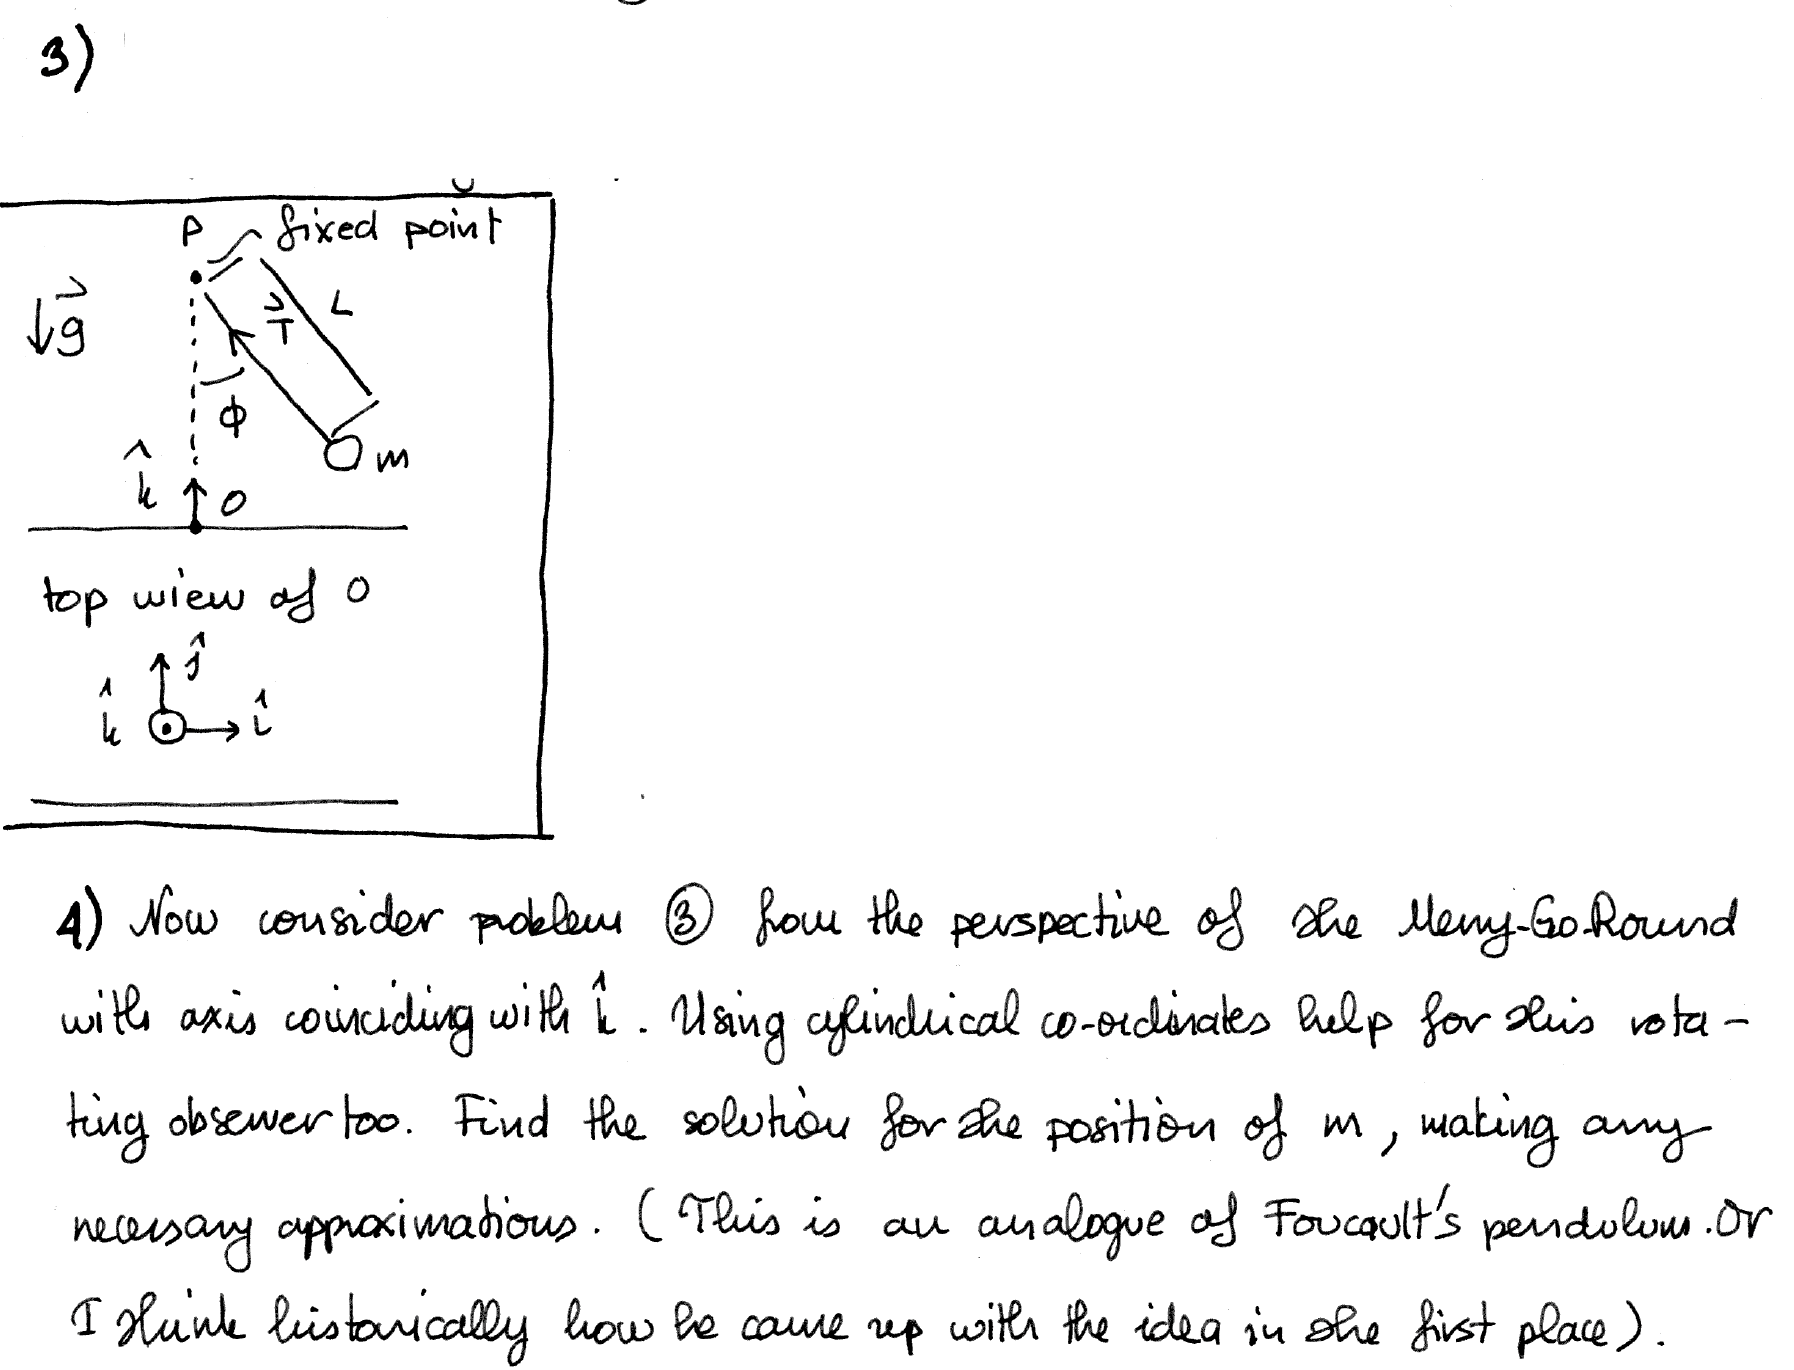 3)
P fixed point
g
T L
ϕ
m
k̂ O
top wiew of O
ĵ
k̂ î
4) Now consider problem ③ from the perspective of the Merry-Go-Round
with axis coinciding with k̂. Using cylindrical co-ordinates help for this rota-
ting observer too. Find the solution for the position of m, making any
necessary approximations. (This is an analogue of Foucault's pendulum. Or
I think historically how he came up with the idea in the first place).